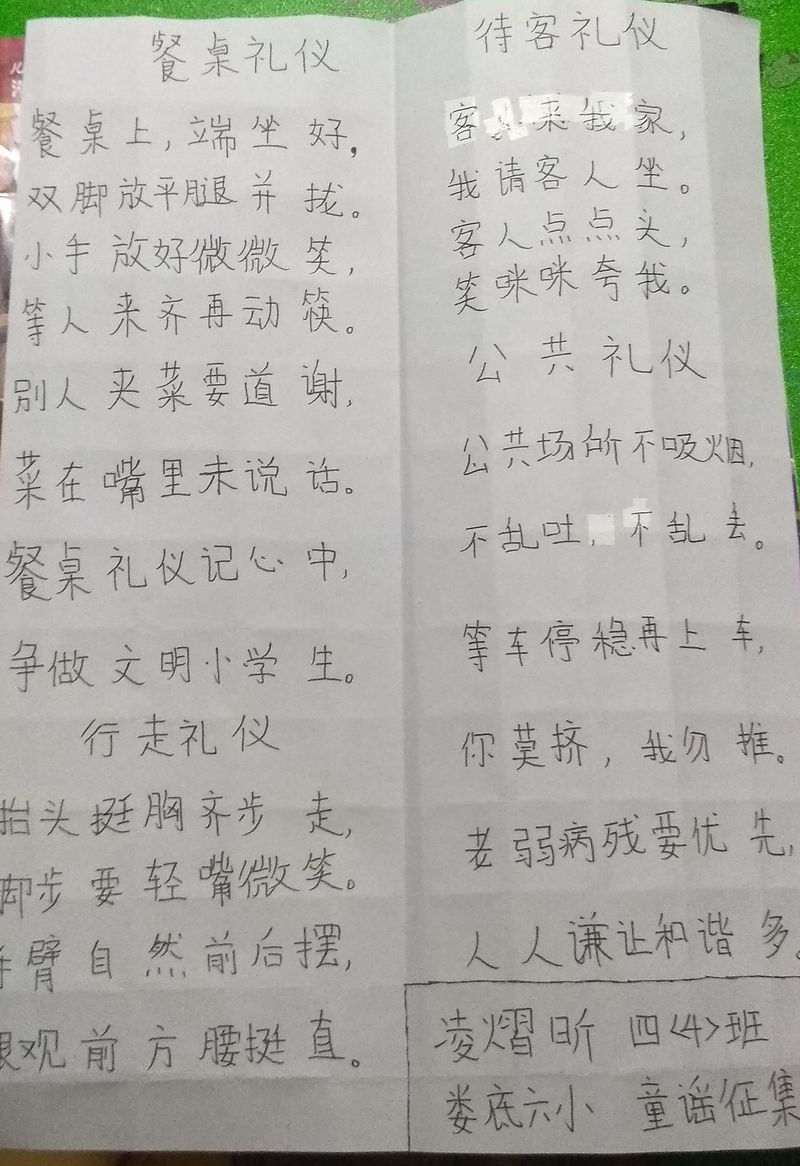 餐桌礼仪
餐桌上,端坐好,
双脚放平腿并拢。
小手放好微微笑,
等人来齐再动筷。
别人夹菜要道谢,
菜在嘴里未说话。
餐桌礼仪记心中,
争做文明小学生。
行走礼仪
抬头挺胸齐步走,
脚步要轻嘴微笑。
臂自然前后摆,
眼观前方腰挺直。
待客礼仪
客人来我家,
我请客人坐。
客人点点头,
笑咪咪夸我。
公共礼仪
公共场所不吸烟,
不乱吐,不乱丢。
等车停稳再上车,
你莫挤,我勿推。
老弱病残要优先,
人人谦让和谐多。
凌熠昕 四〈4〉班
娄底六小 童谣征集